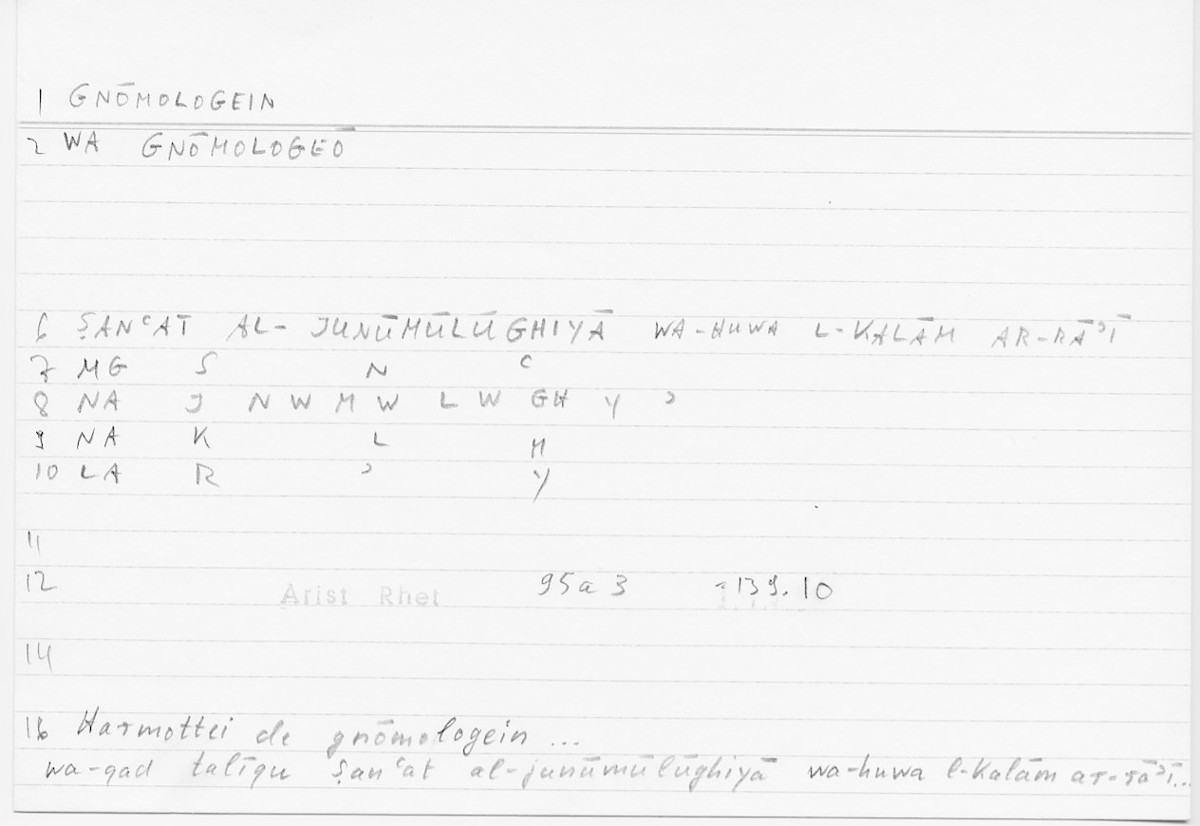 1 GNŌMOLOGEIN
2 WA GNŌMOLOGEŌ
6 ṢANʿAT AL-JUNŪMŪLŪGHIYĀ WA-HUWA L-KALĀM AR-RĀʾĪ
7 MG S N ʿ
8 NA J N W M W L W GH Y ʾ
9 NA K L M
10 LA R ʾ Y
11
12 Arist Rhet 95a3 = 139.10
14
16 Harmottei de gnōmologein ...
wa-qad talīqu ṣanʿat al-junūmūlūghiyā wa-huwa l-kalām ar-rāʾī...